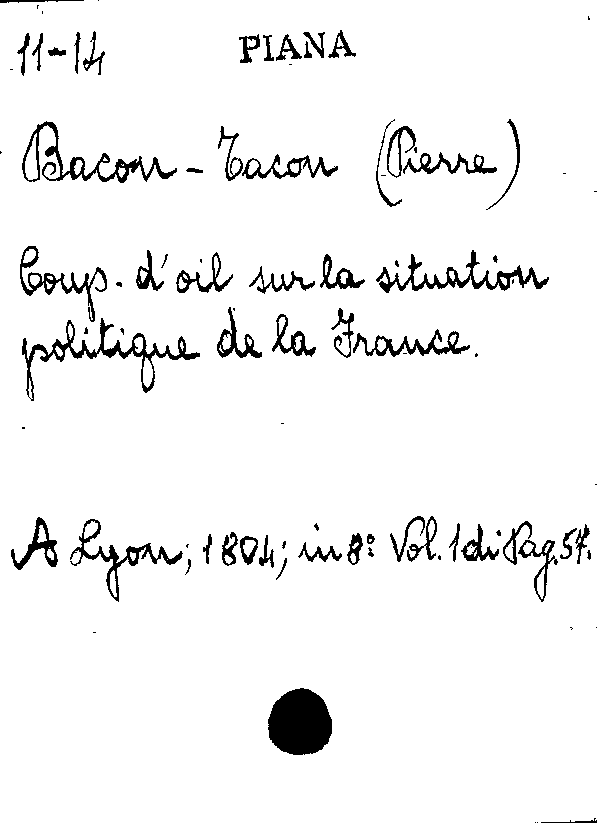 11-14 PIANA
Bacon - Tacon (Pierre)
Coup. d'oil sur la situation
politique de la France.
A Lyon; 1804; in 8º Vol. 1 di Pag. 57.